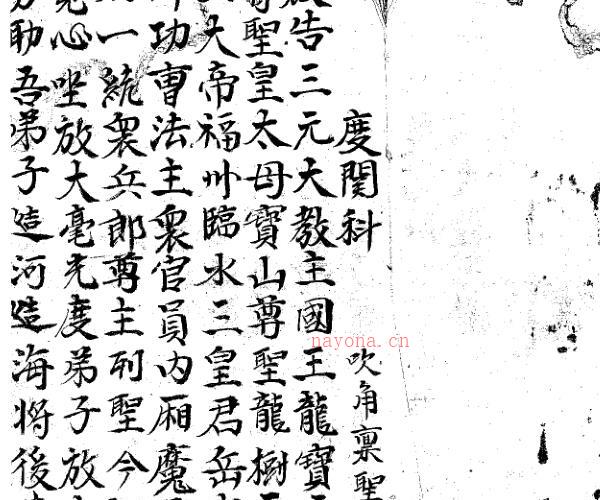 度関科
吹角稟聖
告三元大教主國王龍寶
聖皇太母寶山尊聖龍樹
大帝福州臨水三皇君岳
功曹法主衆官員内厢魔
一統衆兵郎尊主列聖今
心坐放大毫光度弟子放
助吾弟子造河造海将後
nayona.cn